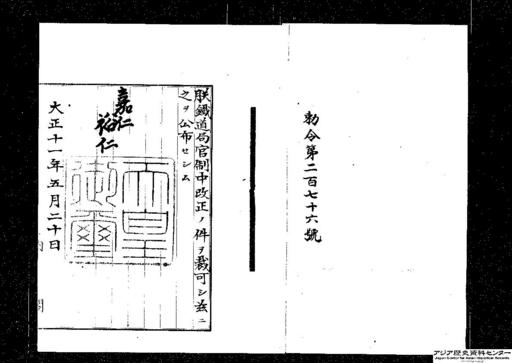 勅令第二百七十六號
朕鐵道局官制中改正ノ件ヲ裁可シ茲ニ
之ヲ公布セシム
嘉仁
裕仁
大正十一年五月二十日
天皇御璽
アジア歴史資料センター
Japan Center for Asian Historical Records